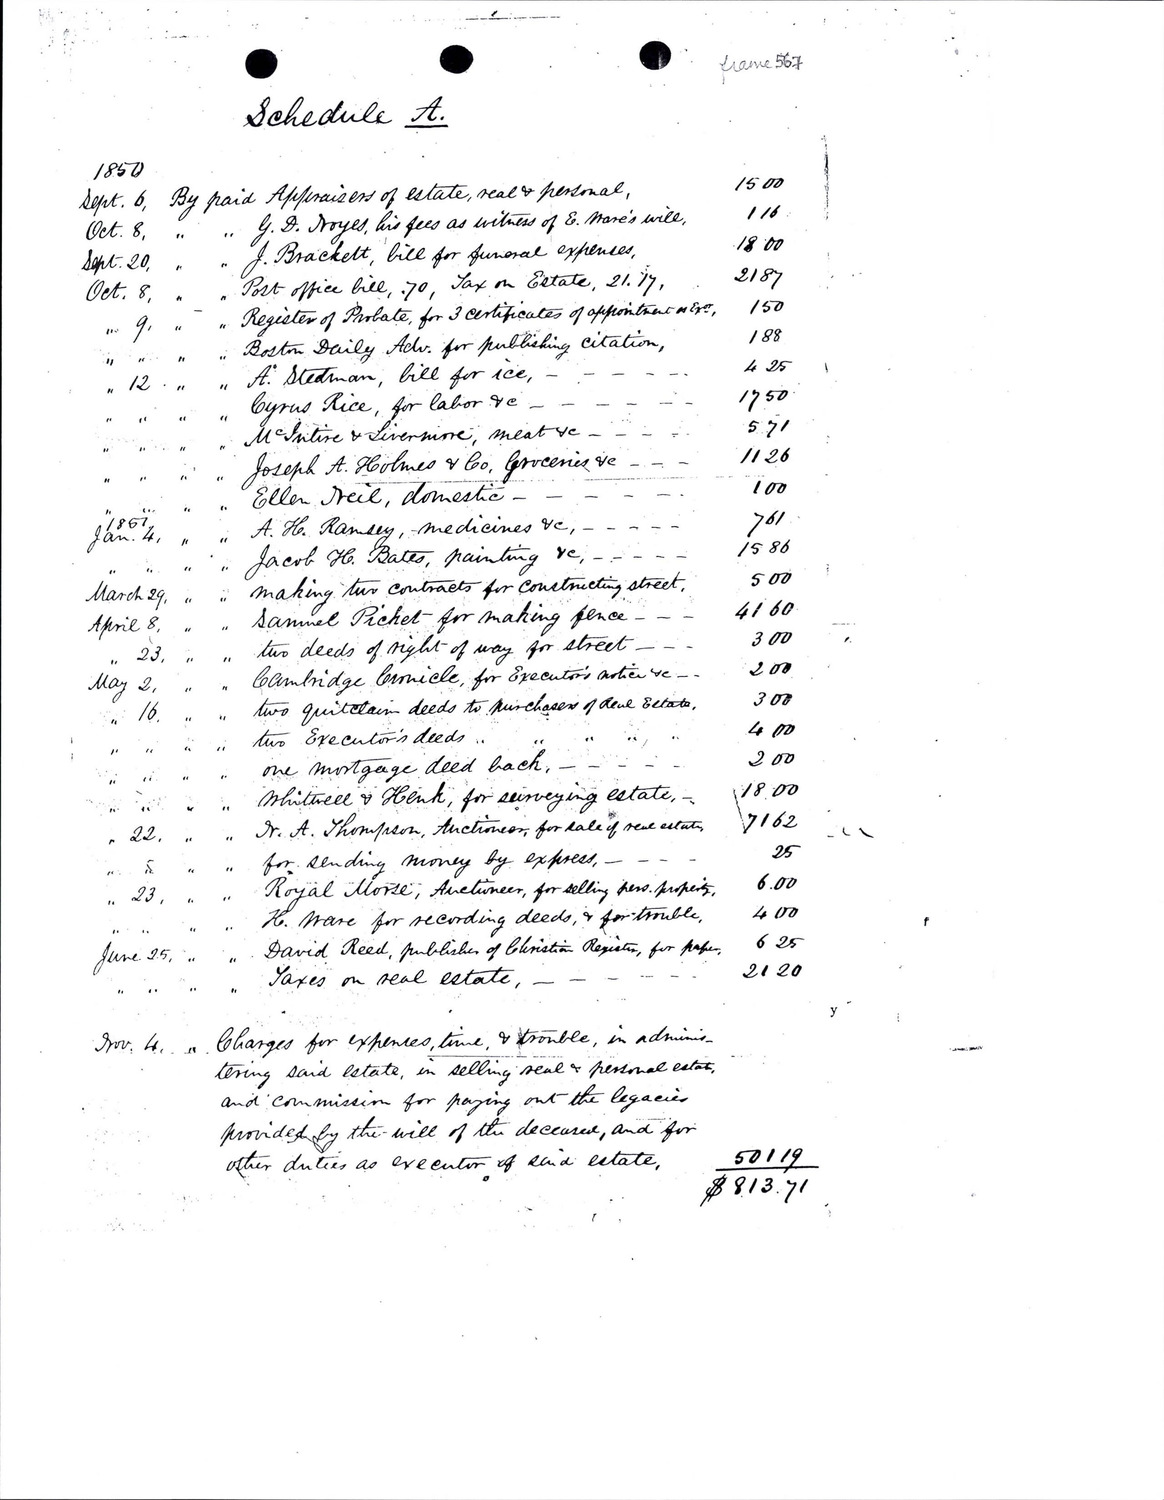 frame 567
Schedule A.
1850
Sept. 6, By paid Appraisers of estate, real & personal, 15 00
Oct. 8, " " G. D. Noyes, his fees as witness of E. Ware's will, 1 16
Sept. 20, " " J. Brackett, bill for funeral expenses, 18 00
Oct. 8, " " Post office bill, .70, Tax on Estate, 21.17, 21 87
" 9, " " Register of Probate, for 3 certificates of appointment as Exor, 1 50
" " " " Boston Daily Adv. for publishing citation, 1 88
" 12 " " A. Stedman, bill for ice, - - - - - - 4 25
" " " " Cyrus Rice, for labor &c - - - - - - 17 50
" " " " McIntire & Livermore, meat &c - - - - 5 71
" " " " Joseph A. Holmes & Co, Groceries &c - - - 11 26
" " " " Ellen Neil, domestic - - - - - - 1 00
1851,
Jan. 4, " " A. H. Ramsey, medicines &c, - - - - 7 61
" " " " Jacob H. Bates, painting &c, - - - - 15 86
March 29, " " making two contracts for constructing street, 5 00
April 8, " " Samuel Picket for making fence - - - 41 60
" 23, " " two deeds of right of way for street - - - 3 00
May 2, " " Cambridge Cronicle, for Executor's notice &c - - 2 00
" 16. " " two quitclaim deeds to purchasers of Real Estate, 3 00
" " " " two Executor's deeds " " " " " 4 00
" " " " one mortgage deed back, - - - - - 2 00
" " " " Whitwell & Henk, for surveying estate, - 18.00
" 22, " " N. A. Thompson, Auctioneer, for sale of real estate, 71 62
" " " " for sending money by express, - - - - 25
" 23, " " Royal Morse, Auctioneer, for selling pers. property, 6.00
" " " " H. Ware for recording deeds, & for trouble, 4 00
June 25, " " David Reed, publisher of Christian Register, for paper, 6 25
" " " " Taxes on real estate, - - - - - - 21 20
Nov. 4, " Charges for expenses, time, & trouble, in adminis-
tering said estate, in selling real & personal estate,
and commission for paying out the legacies
provided by the will of the deceased, and for
other duties as executor of said estate, 501 19
$ 813.71